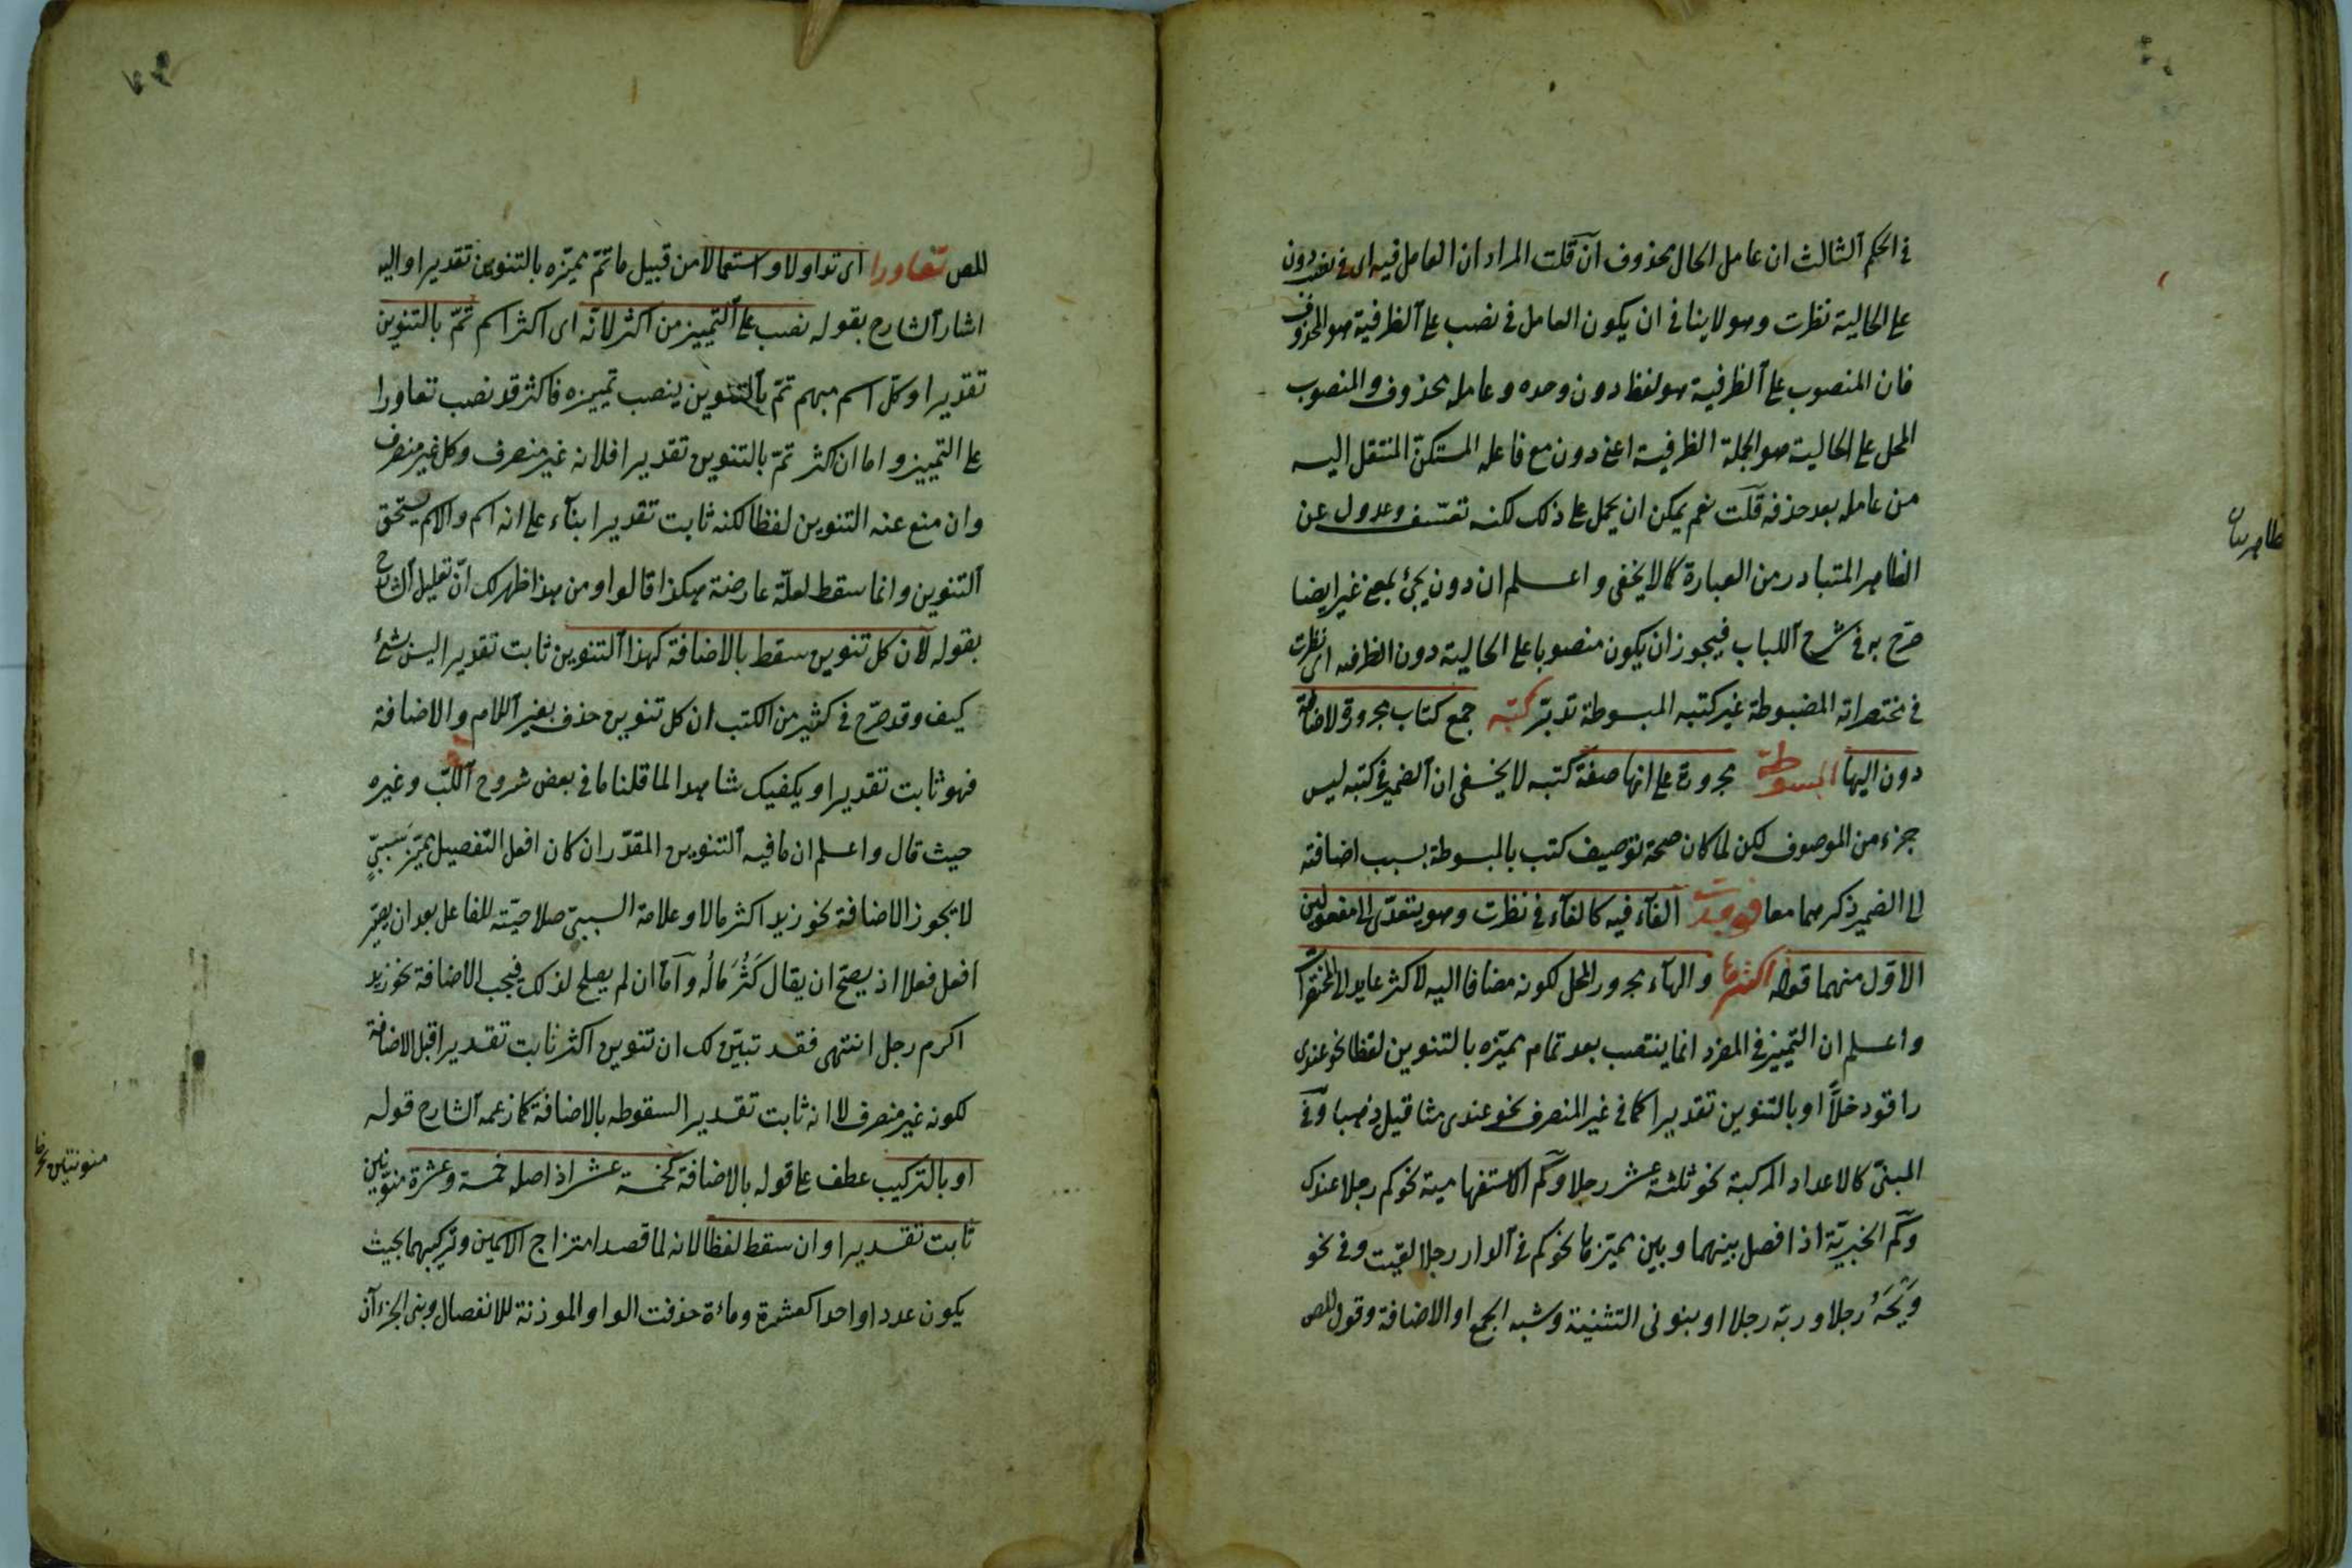 في الحكم الثالث ان عامل الحال محذوف فان قلت المراد ان العامل فيه اى في نصب دون
على الحالية نظرت وهو لا ينافي ان يكون العامل في نصب على الظرفية هو المحذوف
فان المنصوب على الظرفية هو لفظ دون وحده وعامله محذوف والمنصوب
المحل على الحالية هو الجملة الظرفية اعنى دون مع فاعله المستكن المنتقل اليه
من عامله بعد حذفه قلت نعم يمكن ان يحمل على ذلك لكنه تعسّف وعدول عن
الظاهر المتبادر من العبارة كما لا يخفى واعلم ان دون يجئ بمعنى غير ايضا
صرّح به في شرح اللباب فيجوز ان يكون منصوبا على الحالية دون الظرفيه اى نظرت
في مختصراته المضبوطة غير كتبه المبسوطة تدبّر كتبه جمع كتاب مجرورة لاضافة
دون اليها المبسوطة مجرورة على انها صفة كتبه لا يخفى ان الضمير في كتبه ليس
جزء من الموصوف لكن لما كان صحة توصيف كتب بالمبسوطة بسبب اضافته
الى الضمير ذكرهما معا فوجدت الفآء فيه كالفآء في نظرت وهو يتعدّى الى مفعولين
الاوّل منهما قوله اكثرها والهآء مجرور المحل لكونه مضافا اليه لاكثر عايد الى المختصرات
واعلم ان التمييز في المفرد انما ينتصب بعد تمام مميّزه بالتنوين لفظا نحو عندى
راقود خلاًّ او بالتنوين تقديرا كما في غير المنصرف نحو عندى مثاقيل ذهبا وفي
المبنىّ كالاعداد المركبة نحو ثلثة عشر رجلا وكم الاستفهامية نحو كم رجلا عندك
وكم الخبريّة اذا فصل بينهما وبين مميّزها نحو كم في الدار رجلا لقيت وفي نحو
ويحَهُ رجلا وربّه رجلا او بنونى التثنية وشبه الجمع او الاضافة وقول المص
ظاهر بيان
للمص تعاورا اى تداولا واستعمالا من قبيل ما تمّ مميّزه بالتنوين تقديرا واليه
اشار الشارح بقوله نصب على التمييز من اكثر لانّه اى اكثر اسم تمّ بالتنوين
تقديرا وكل اسم مبهم تمّ بالتنوين ينصب تمييزه فاكثر قد نصب تعاورا
على التمييز واما ان اكثر تمّ بالتنوين تقديرا فلانه غير منصرف وكل غير منصرف
وان منع عنه التنوين لفظا لكنه ثابت تقديرا بنآء على انه اسم والاسم يستحق
التنوين وانما سقط لعلّة عارضة هكذا قالوا ومن هذا ظهر لك انّ تعليل الشارح
بقوله لان كل تنوين سقط بالاضافة كهذا التنوين ثابت تقديرا ليس بشئ
كيف وقد صرّح في كثير من الكتب ان كل تنوين حذف بغير اللام والاضافة
فهو ثابت تقديرا ويكفيك شاهدا لما قلنا ما في بعض شروح اللبّ وغيره
حيث قال واعلم ان ما فيه التنوين المقدّر ان كان افعل التفضيل مميّز سَببىٍّ
لا يجوز الاضافة نحو زيد اكثر مالا وعلامة السببىّ صلاحيّته للفاعل بعد ان يصيّر
افعل فعلا اذ يصحّ ان يقال كَثُرَ مَالُه وامّا ان لم يصلح لذلك فيجب الاضافة نحو زيد
اكرم رجل انتهى فقد تبيّن لك ان تنوين اكثر ثابت تقديرا قبل الاضافة
لكونه غير منصرف لا انه ثابت تقديرا لسقوطه بالاضافة كما زعمه الشارح قوله
او بالتركيب عطف على قوله بالاضافة كخمسة عشر اذ اصله خمسة وعشرة منوّنين
ثابت تقديرا وان سقط لفظا لانه لما قصد امتزاج الاسمين وتركيبهما بحيث
يكون عددا واحدا كعشرة ومائة حذفت الواو الموذنة للانفصال وبنى الجزءان
منونتين